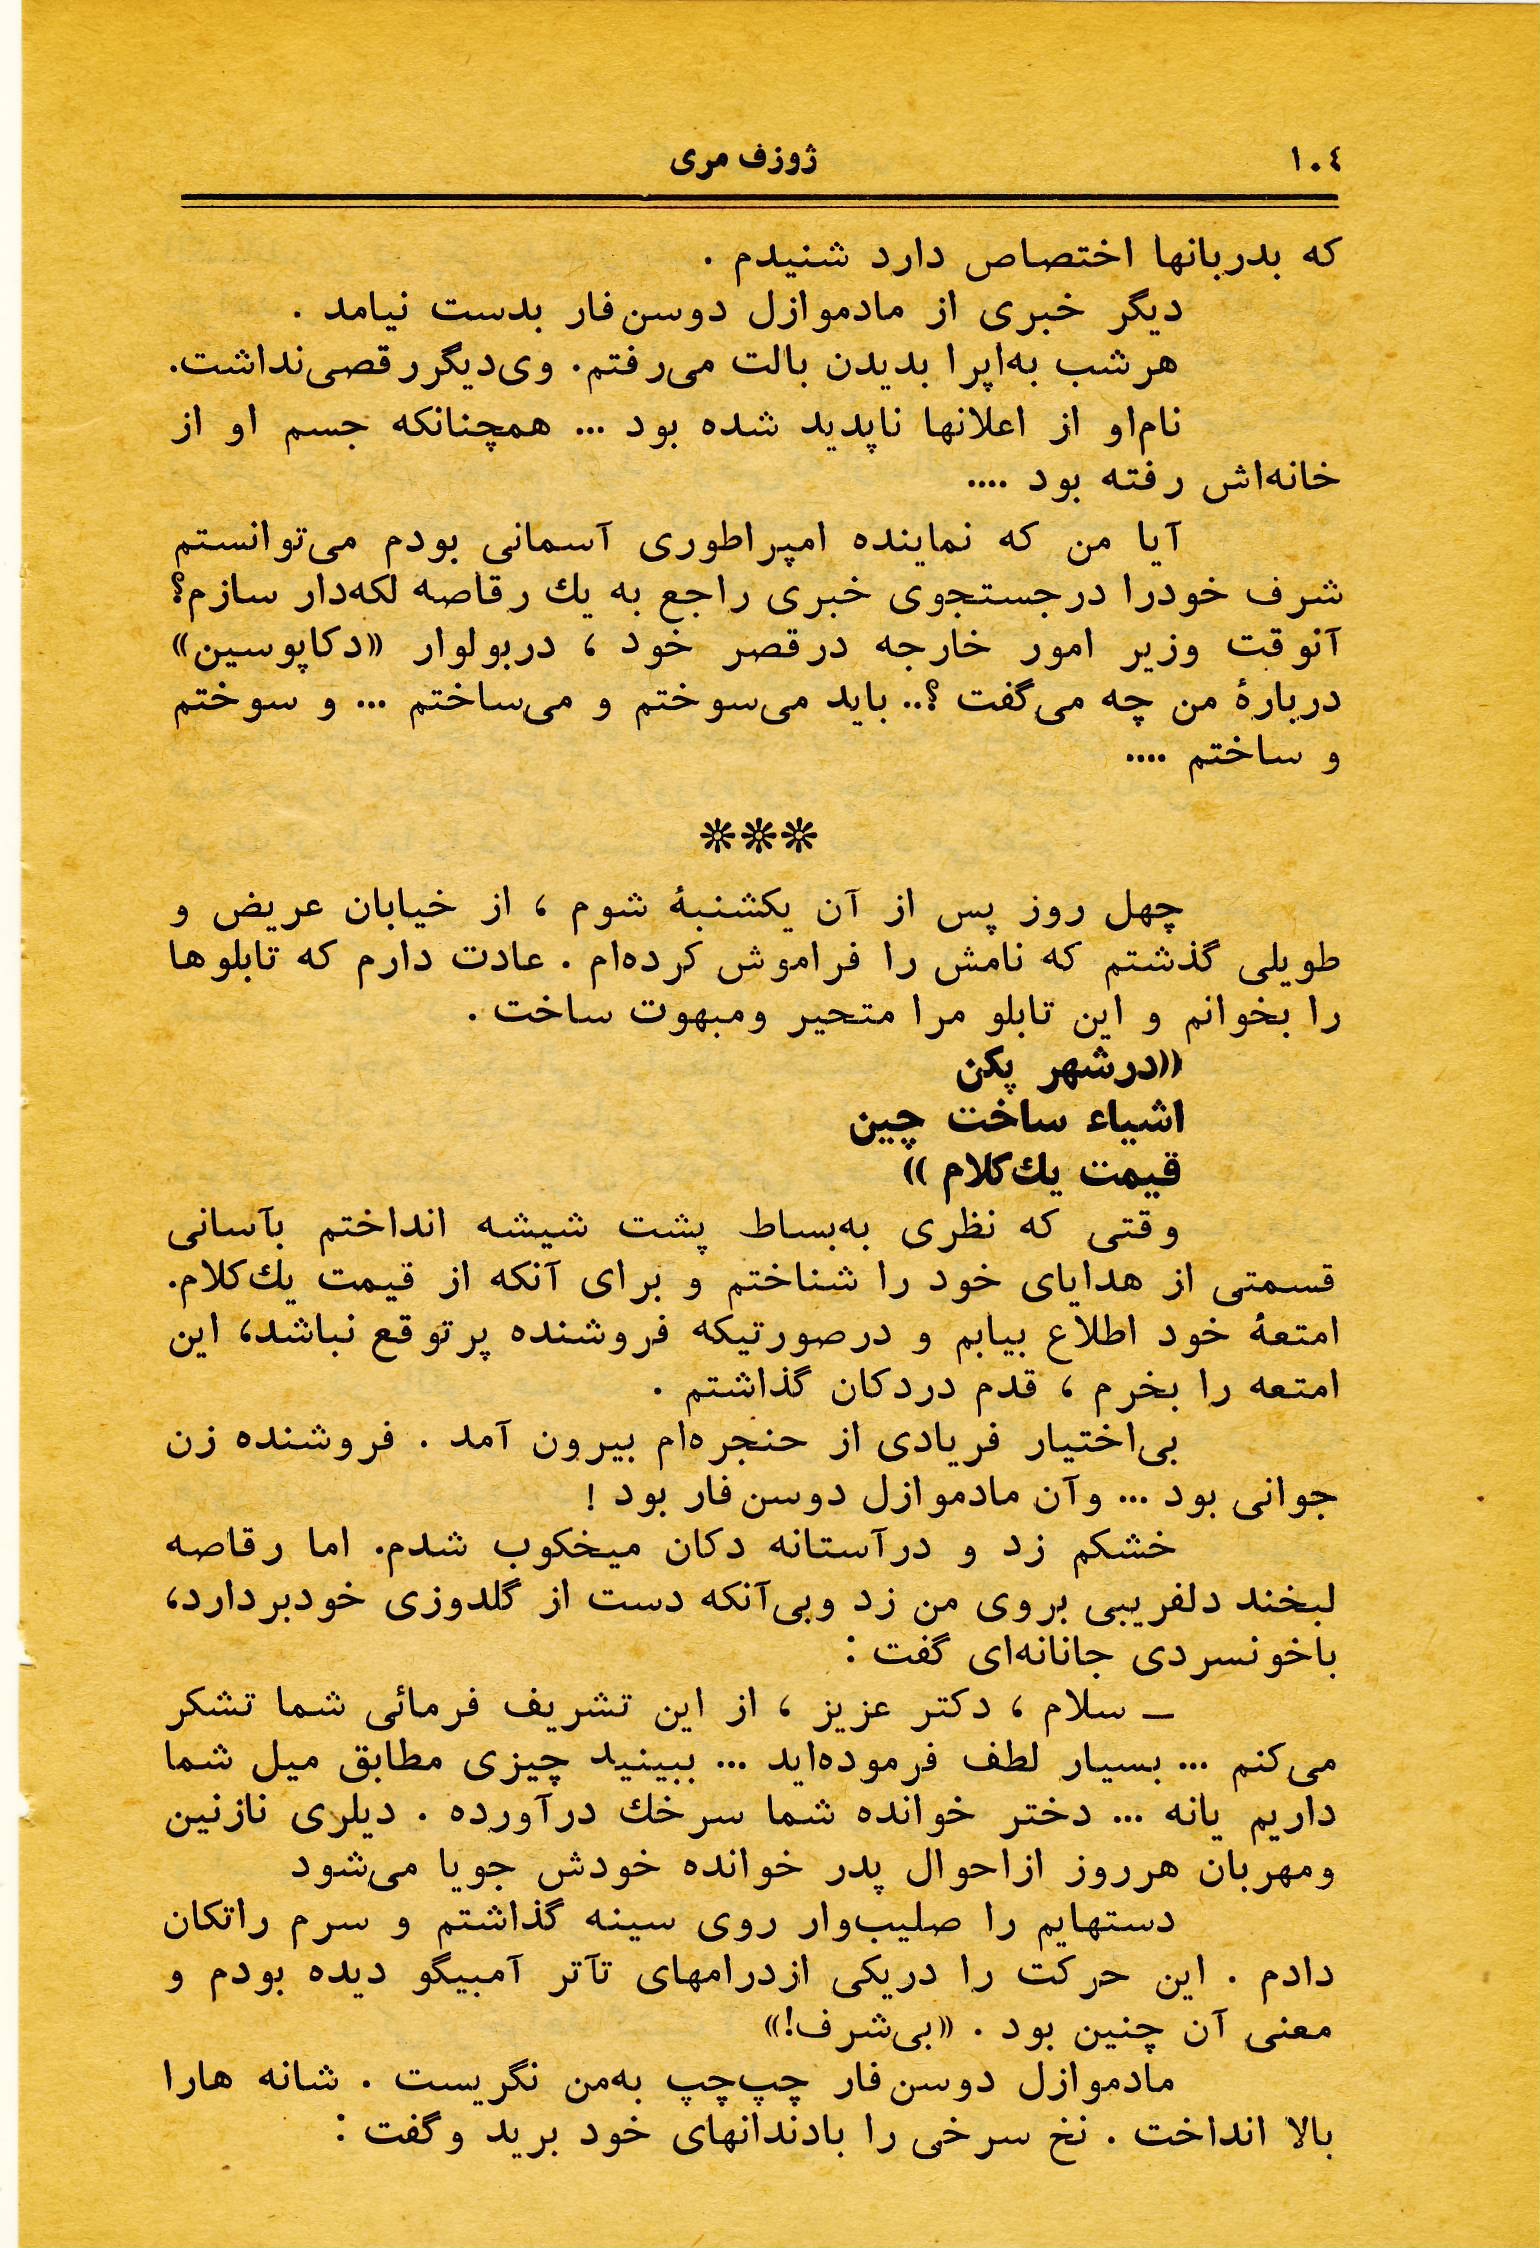 ۱۰٤
ژوزف مری
که بدربانها اختصاص دارد شنیدم .
دیگر خبری از مادموازل دوسن‌فار بدست نیامد .
هرشب به‌اپرا بدیدن بالت می‌رفتم. وی‌دیگر رقصی‌نداشت.
نام‌او از اعلانها ناپدید شده بود ... همچنانکه جسم او از
خانه‌اش رفته بود ....
آیا من که نماینده امپراطوری آسمانی بودم می‌توانستم
شرف خودرا درجستجوی خبری راجع به یك رقاصه لکه‌دار سازم؟
آنوقت وزیر امور خارجه درقصر خود ، دربولوار «دکاپوسین»
دربارهٔ من چه می‌گفت ؟.. باید می‌سوختم و می‌ساختم ... و سوختم
و ساختم ....
***
چهل روز پس از آن یکشنبهٔ شوم ، از خیابان عریض و
طویلی گذشتم که نامش را فراموش کرده‌ام . عادت دارم که تابلوها
را بخوانم و این تابلو مرا متحیر ومبهوت ساخت .
«درشهر پکن
اشیاء ساخت چین
قیمت یك‌کلام »
وقتی که نظری به‌بساط پشت شیشه انداختم بآسانی
قسمتی از هدایای خود را شناختم و برای آنکه از قیمت یك‌کلام.
امتعهٔ خود اطلاع بیابم و درصورتیکه فروشنده پرتوقع نباشد، این
امتعه را بخرم ، قدم دردکان گذاشتم .
بی‌اختیار فریادی از حنجره‌ام بیرون آمد . فروشنده زن
جوانی بود ... وآن مادموازل دوسن‌فار بود !
خشکم زد و درآستانه دکان میخکوب شدم. اما رقاصه
لبخند دلفریبی بروی من زد وبی‌آنکه دست از گلدوزی خودبردارد،
باخونسردی جانانه‌ای گفت :
ــ سلام ، دکتر عزیز ، از این تشریف فرمائی شما تشکر
می‌کنم ... بسیار لطف فرموده‌اید ... ببینید چیزی مطابق میل شما
داریم یانه ... دختر خوانده شما سرخك درآورده . دیلری نازنین
ومهربان هرروز ازاحوال پدر خوانده خودش جویا می‌شود
دستهایم را صلیب‌وار روی سینه گذاشتم و سرم راتکان
دادم . این حرکت را دریکی ازدرامهای تآتر آمبیگو دیده بودم و
معنی آن چنین بود . «بی‌شرف!»
مادموازل دوسن‌فار چپ‌چپ به‌من نگریست . شانه هارا
بالا انداخت . نخ سرخی را بادندانهای خود برید وگفت :